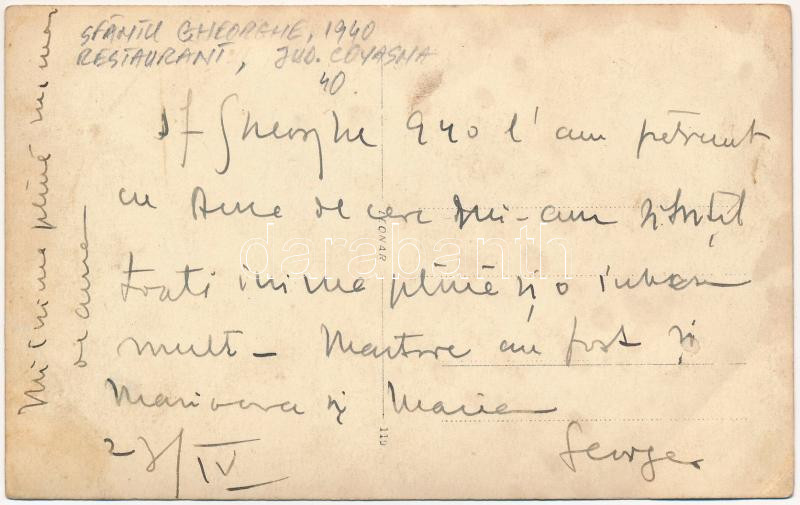 SFÂNTU GHEORGHE, 1940
RESTAURANT, JUD. COVASNA
40.
Sf Gheorghe 940 l'am petrecut
cu Ana de care mi-am
toată inima plină și o iubesc
mult – Martore au fost și
Marioara și Maria
23/IV George
Mi inima plină
de
FONAR
119
darabanth